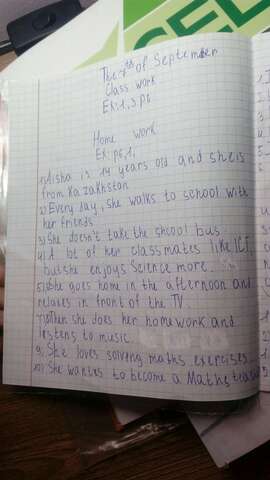 The 7th of September
Class work
Ex: 1, 3 p6
Home work
Ex: p6, 1,
1) Aisha is 14 years old and she is
from Kazakhston
2) Every day, she walks to school with
her friends
3) She doesn't take the school bus
4) A lot of her classmates like ICT,
but she enjoys Science more.
5) She goes home in the afternoon and
relaxes in front of the TV.
7) Then she does her homework and
listens to music.
9) She loves solving maths exercises.
10) She wantes to become a Maths